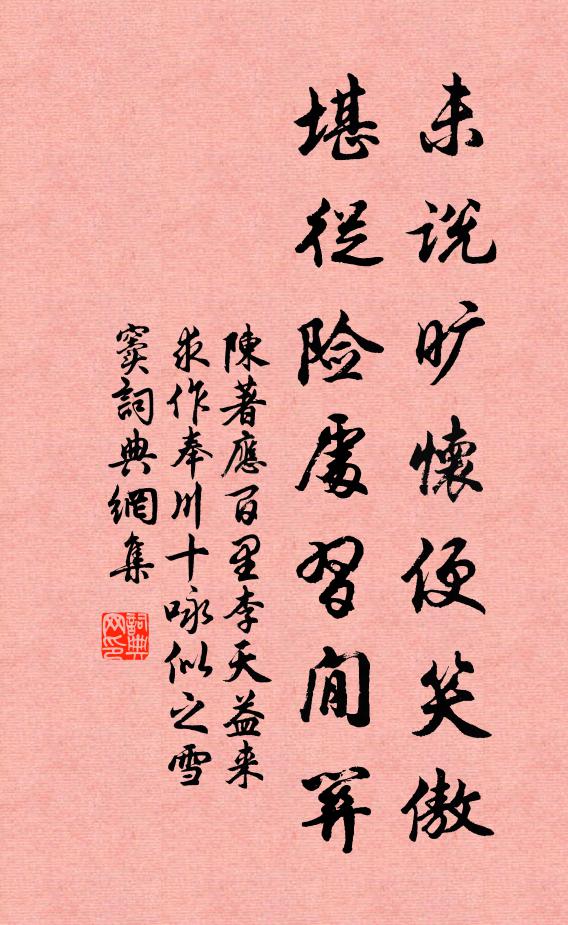 未說旷懷便笑傲
堪從险處習閒算
陳著應百里李天益来
求作奉川十咏似之雪
窦詞典網集
詞典网印